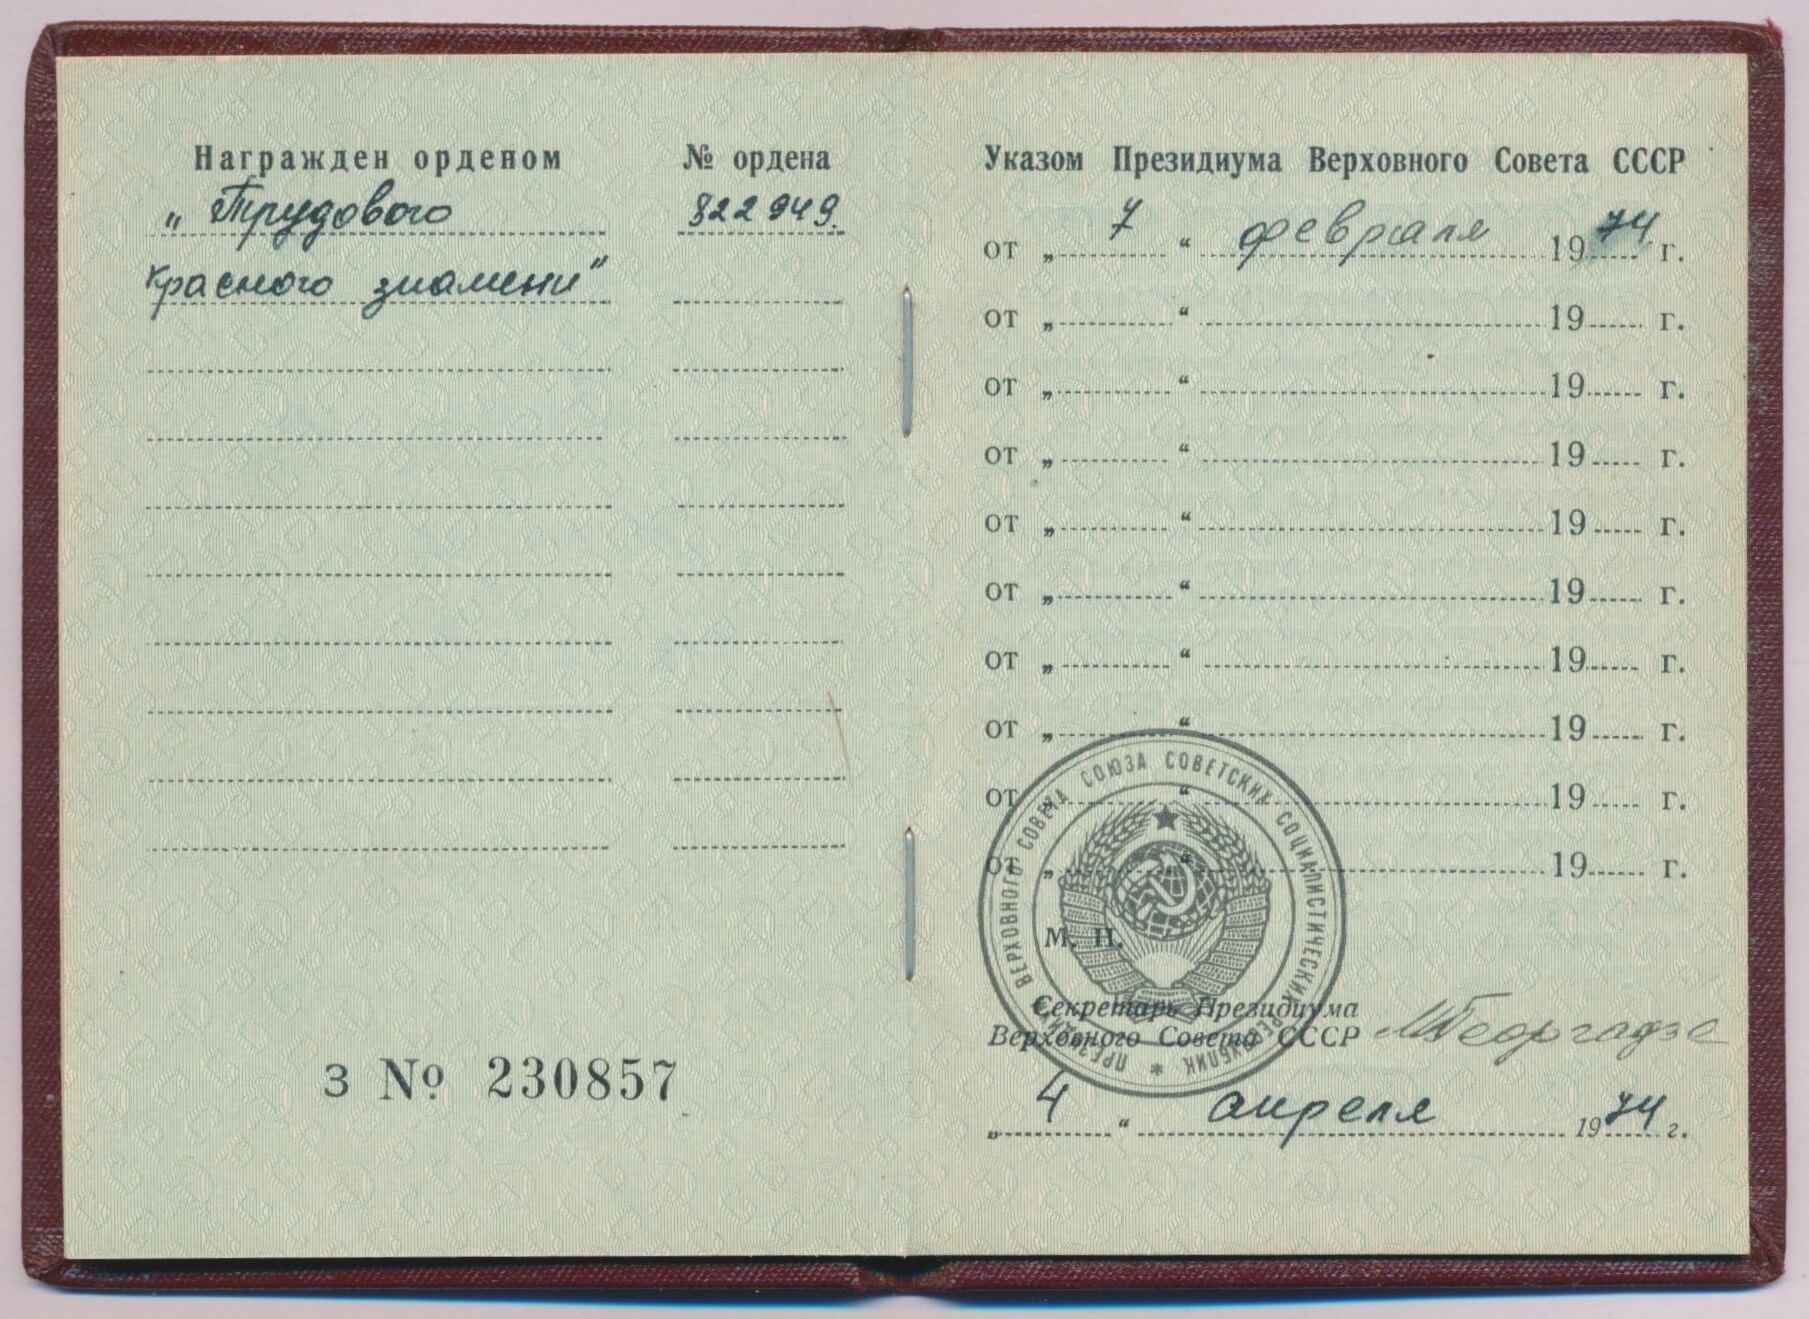 Награжден орденом
№ ордена
„Трудового
822949.
красного знамени"
З № 230857
Указом Президиума Верховного Совета СССР
от „ 7 “ февраля 1974 г.
от „ “ 19 г.
от „ “ 19 г.
от „ “ 19 г.
от „ “ 19 г.
от „ “ 19 г.
от „ “ 19 г.
от „ “ 19 г.
от „ “ 19 г.
от „ “ 19 г.
ПРЕЗИДИУМ ВЕРХОВНОГО СОВЕТА СОЮЗА СОВЕТСКИХ СОЦИАЛИСТИЧЕСКИХ РЕСПУБЛИК *
М. П.
Секретарь Президиума
Верховного Совета СССР МГеоргадзе
„ 4 “ апреля 1974 г.